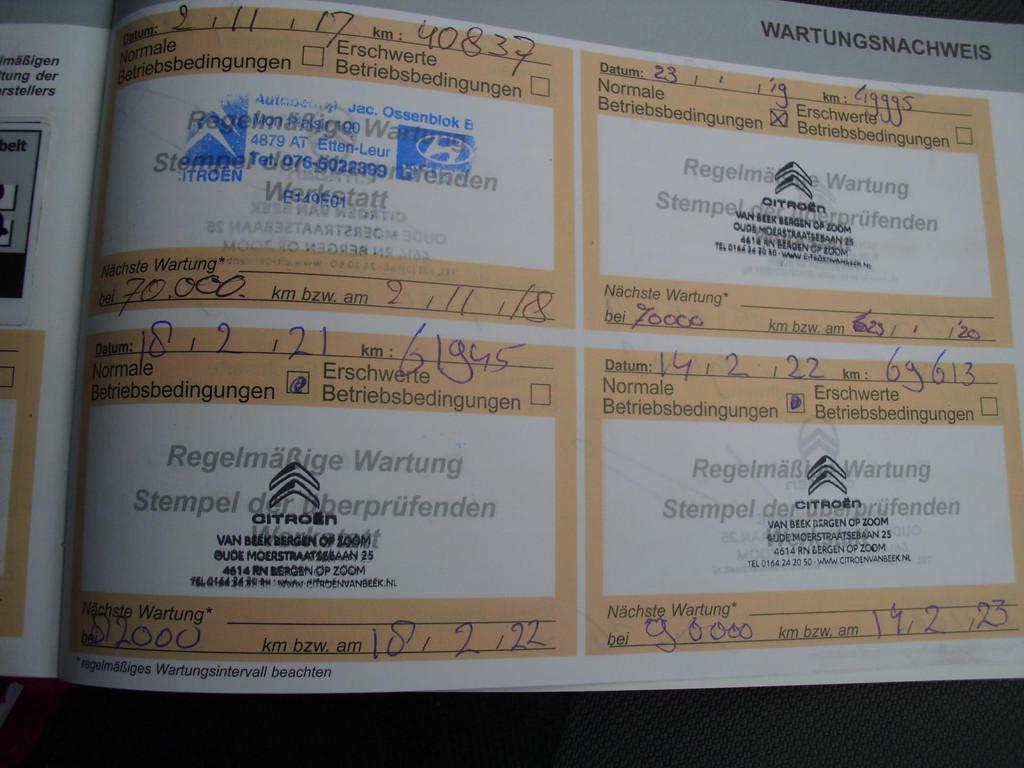 lmäßigen
tung der
erstellers
belt
WARTUNGSNACHWEIS
Datum: 2 , 11 , 17 km : 40837
Normale Betriebsbedingungen
Erschwerte Betriebsbedingungen
Regelmäßige Wartung
Stempel der überprüfenden
Werkstatt
Jac. Ossenblok B
100
4879 AT Etten-Leur
Tel. 076-5022399
CITROËN
E149E01
Nächste Wartung*
bei 70.000. km bzw. am 2 , 11 , 18
Datum: 23 , , '19 km : 49995
Normale Betriebsbedingungen
Erschwerte Betriebsbedingungen
Regelmäßige Wartung
Stempel der überprüfenden
CITROËN
VAN BEEK BERGEN OP ZOOM
OUDE MOERSTRAATSEBAAN 25
4614 RN BERGEN OP ZOOM
TEL 0164 24 20 50 - WWW.CITROENVANBEEK.NL
Nächste Wartung*
bei 70000 km bzw. am 23 , , '20
Datum: 18 , 2 , 21 km : 61945
Normale Betriebsbedingungen
Erschwerte Betriebsbedingungen
Regelmäßige Wartung
Stempel der überprüfenden
Werkstatt
CITROËN
VAN BEEK BERGEN OP ZOOM
OUDE MOERSTRAATSEBAAN 25
4614 RN BERGEN OP ZOOM
TEL 0164 24 20 50 - WWW.CITROENVANBEEK.NL
Nächste Wartung*
bei 82000 km bzw. am 18 , 2 , 22
Datum: 14 , 2 , 22 km : 69613
Normale Betriebsbedingungen
Erschwerte Betriebsbedingungen
Regelmäßige Wartung
Stempel der überprüfenden
CITROËN
VAN BEEK BERGEN OP ZOOM
OUDE MOERSTRAATSEBAAN 25
4614 RN BERGEN OP ZOOM
TEL 0164 24 20 50 - WWW.CITROENVANBEEK.NL
Nächste Wartung*
bei 90000 km bzw. am 14 , 2 , 23
*regelmäßiges Wartungsintervall beachten